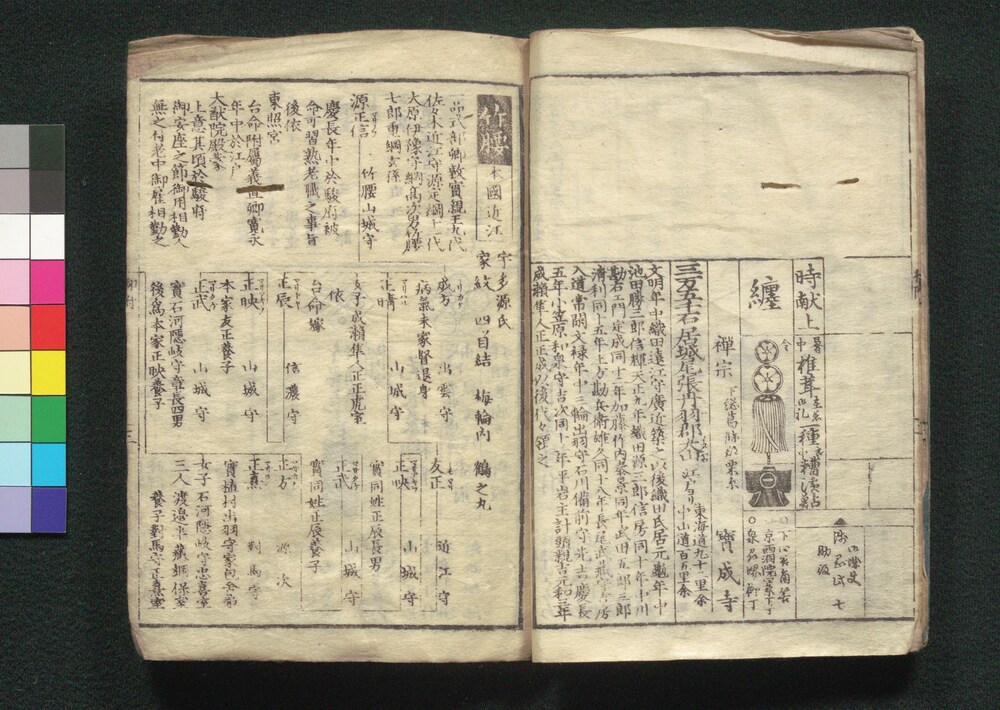 時献上
暑中
椎茸
一種
纏
禅宗
下総葛飾郡栗原
寶成寺
三万五千石居城尾張丹羽郡犬山
東海道九十二里余
小山道百里余
文明年中織田遠江守廣近築之以後織田氏居元亀年中
池田勝三郎信輝天正九年織田源三郎信房同十年中川
勘右エ門定成同十二年加藤作内泰景同年武田五郎三郎
清利同十五年土方勘兵衛雄久同十八年長尾武兵守吉房
入道常閑文禄年中三輪出羽守石川備前守光吉慶長
五年小笠原和泉守吉次同十二年平岩主計頭親吉元和三年
成瀬隼人正正成以後代々領之
竹腰
本國近江
宇多源氏
家紋 四目結 梅輪内 鶴之丸
一品式部卿敦實親王九代
佐々木近江守源定綱十一代
大原伊豫守綱高次男竹腰
七郎重綱玄孫
源正信
竹腰山城守
慶長年中於駿府被
命可習熟老職之事旨
後依
東照宮
台命附属義直卿寛永
年中於江戸
大猷院殿蒙
上意其頃於駿府
御安座之節御用相勤
無之付老中御雇相勤之
成方
出雲守
病氣未家督退身
正晴
山城守
女子成瀬隼人正正虎室
依
台命嫁
正辰
信濃守
正映
山城守
本家友正養子
正武
山城守
實石河隠岐守章長四男
後為本家正映養子
友正
近江守
正映
山城守
實同姓正辰長男
正武
山城守
實同姓正辰養子
正方
源次
正熹
對馬守
女子
石河隠岐守忠喜室
三人
養子對馬守正熹室